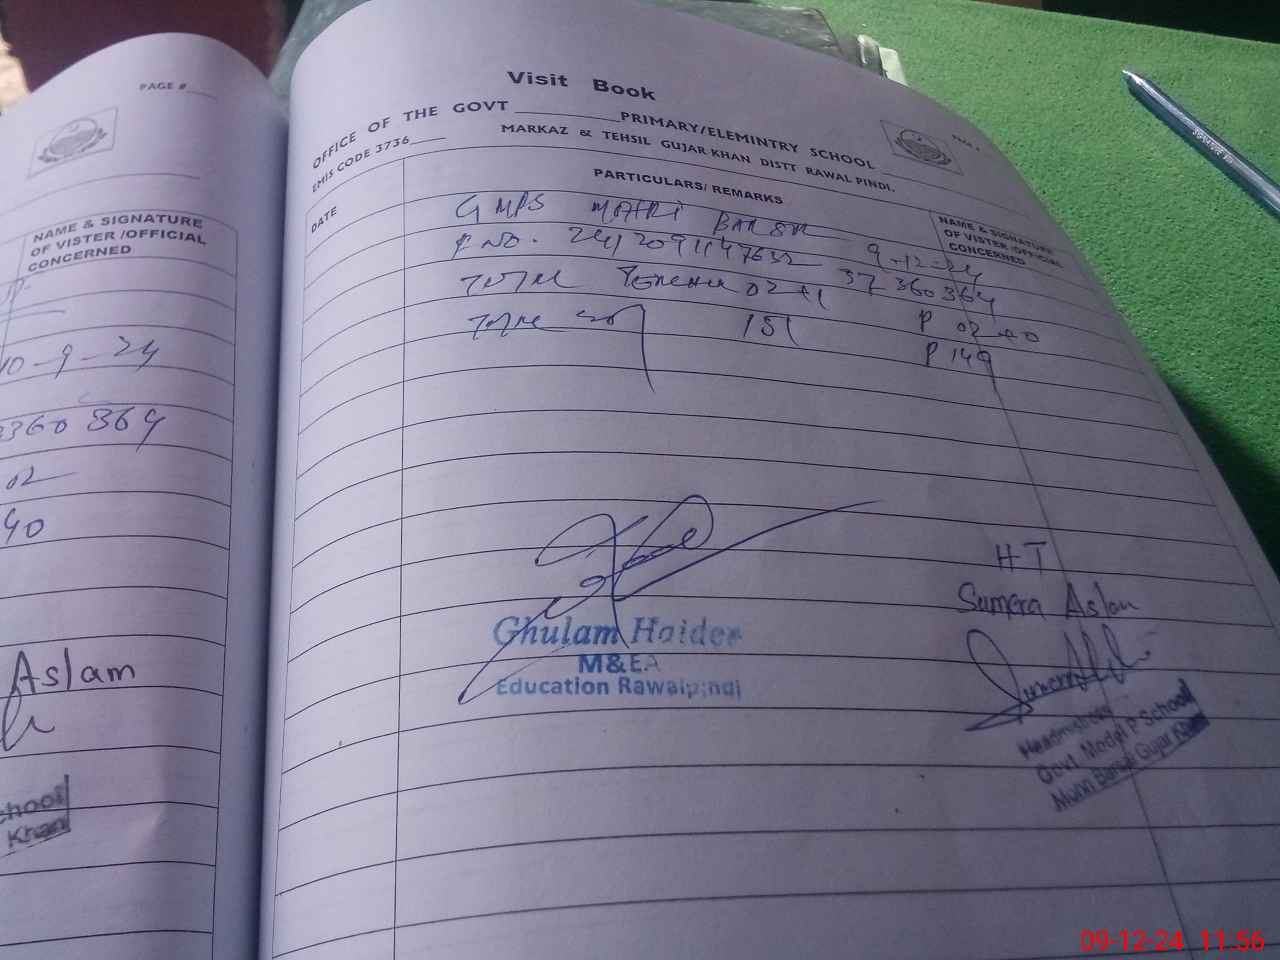 PAGE #
NAME & SIGNATURE
OF VISTER /OFFICIAL
CONCERNED
10-9-24
3360 364
02
40
Aslam
chool
Khan
Visit Book
PAGE #
OFFICE OF THE GOVT PRIMARY/ELEMINTRY SCHOOL
EMIS CODE 3736 MARKAZ & TEHSIL GUJAR KHAN DISTT RAWALPINDI.
DATE
PARTICULARS/ REMARKS
NAME & SIGNATURE
OF VISTER /OFFICIAL
CONCERNED
GMPS 9-12-24
37360364
Total Teacher 02+1 P 02+0
Total 151 P 149
Ghulam Haider
M&EA
Education Rawalpindi
HT
Sumera Aslam
Headmistress
Govt. Model P School
Gujar Khan
SIGNATURE
09-12-24 11:56